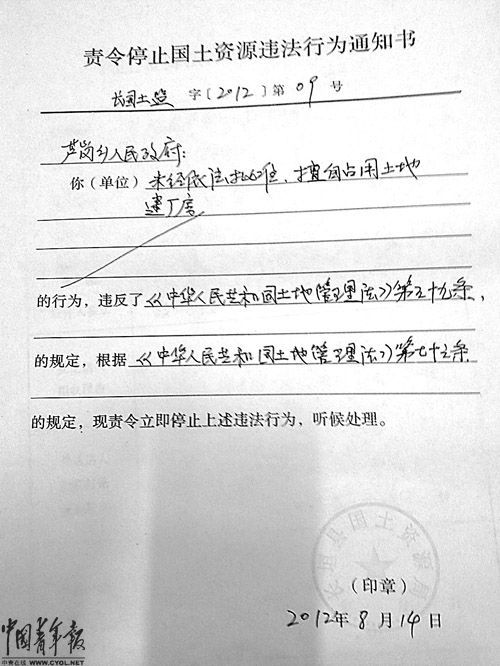 责令停止国土资源违法行为通知书
长国土监 字〔2012〕第 09 号
芦岗乡人民政府:
你(单位)未经依法批准、擅自占用土地
建厂房
的行为,违反了《中华人民共和国土地管理法》第五十九条,
的规定,根据《中华人民共和国土地管理法》第七十三条
的规定,现责令立即停止上述违法行为,听候处理。
长垣县国土资源局
(印章)
2012年8月14日
中国青年报
中青在线 WWW.CYOL.NET